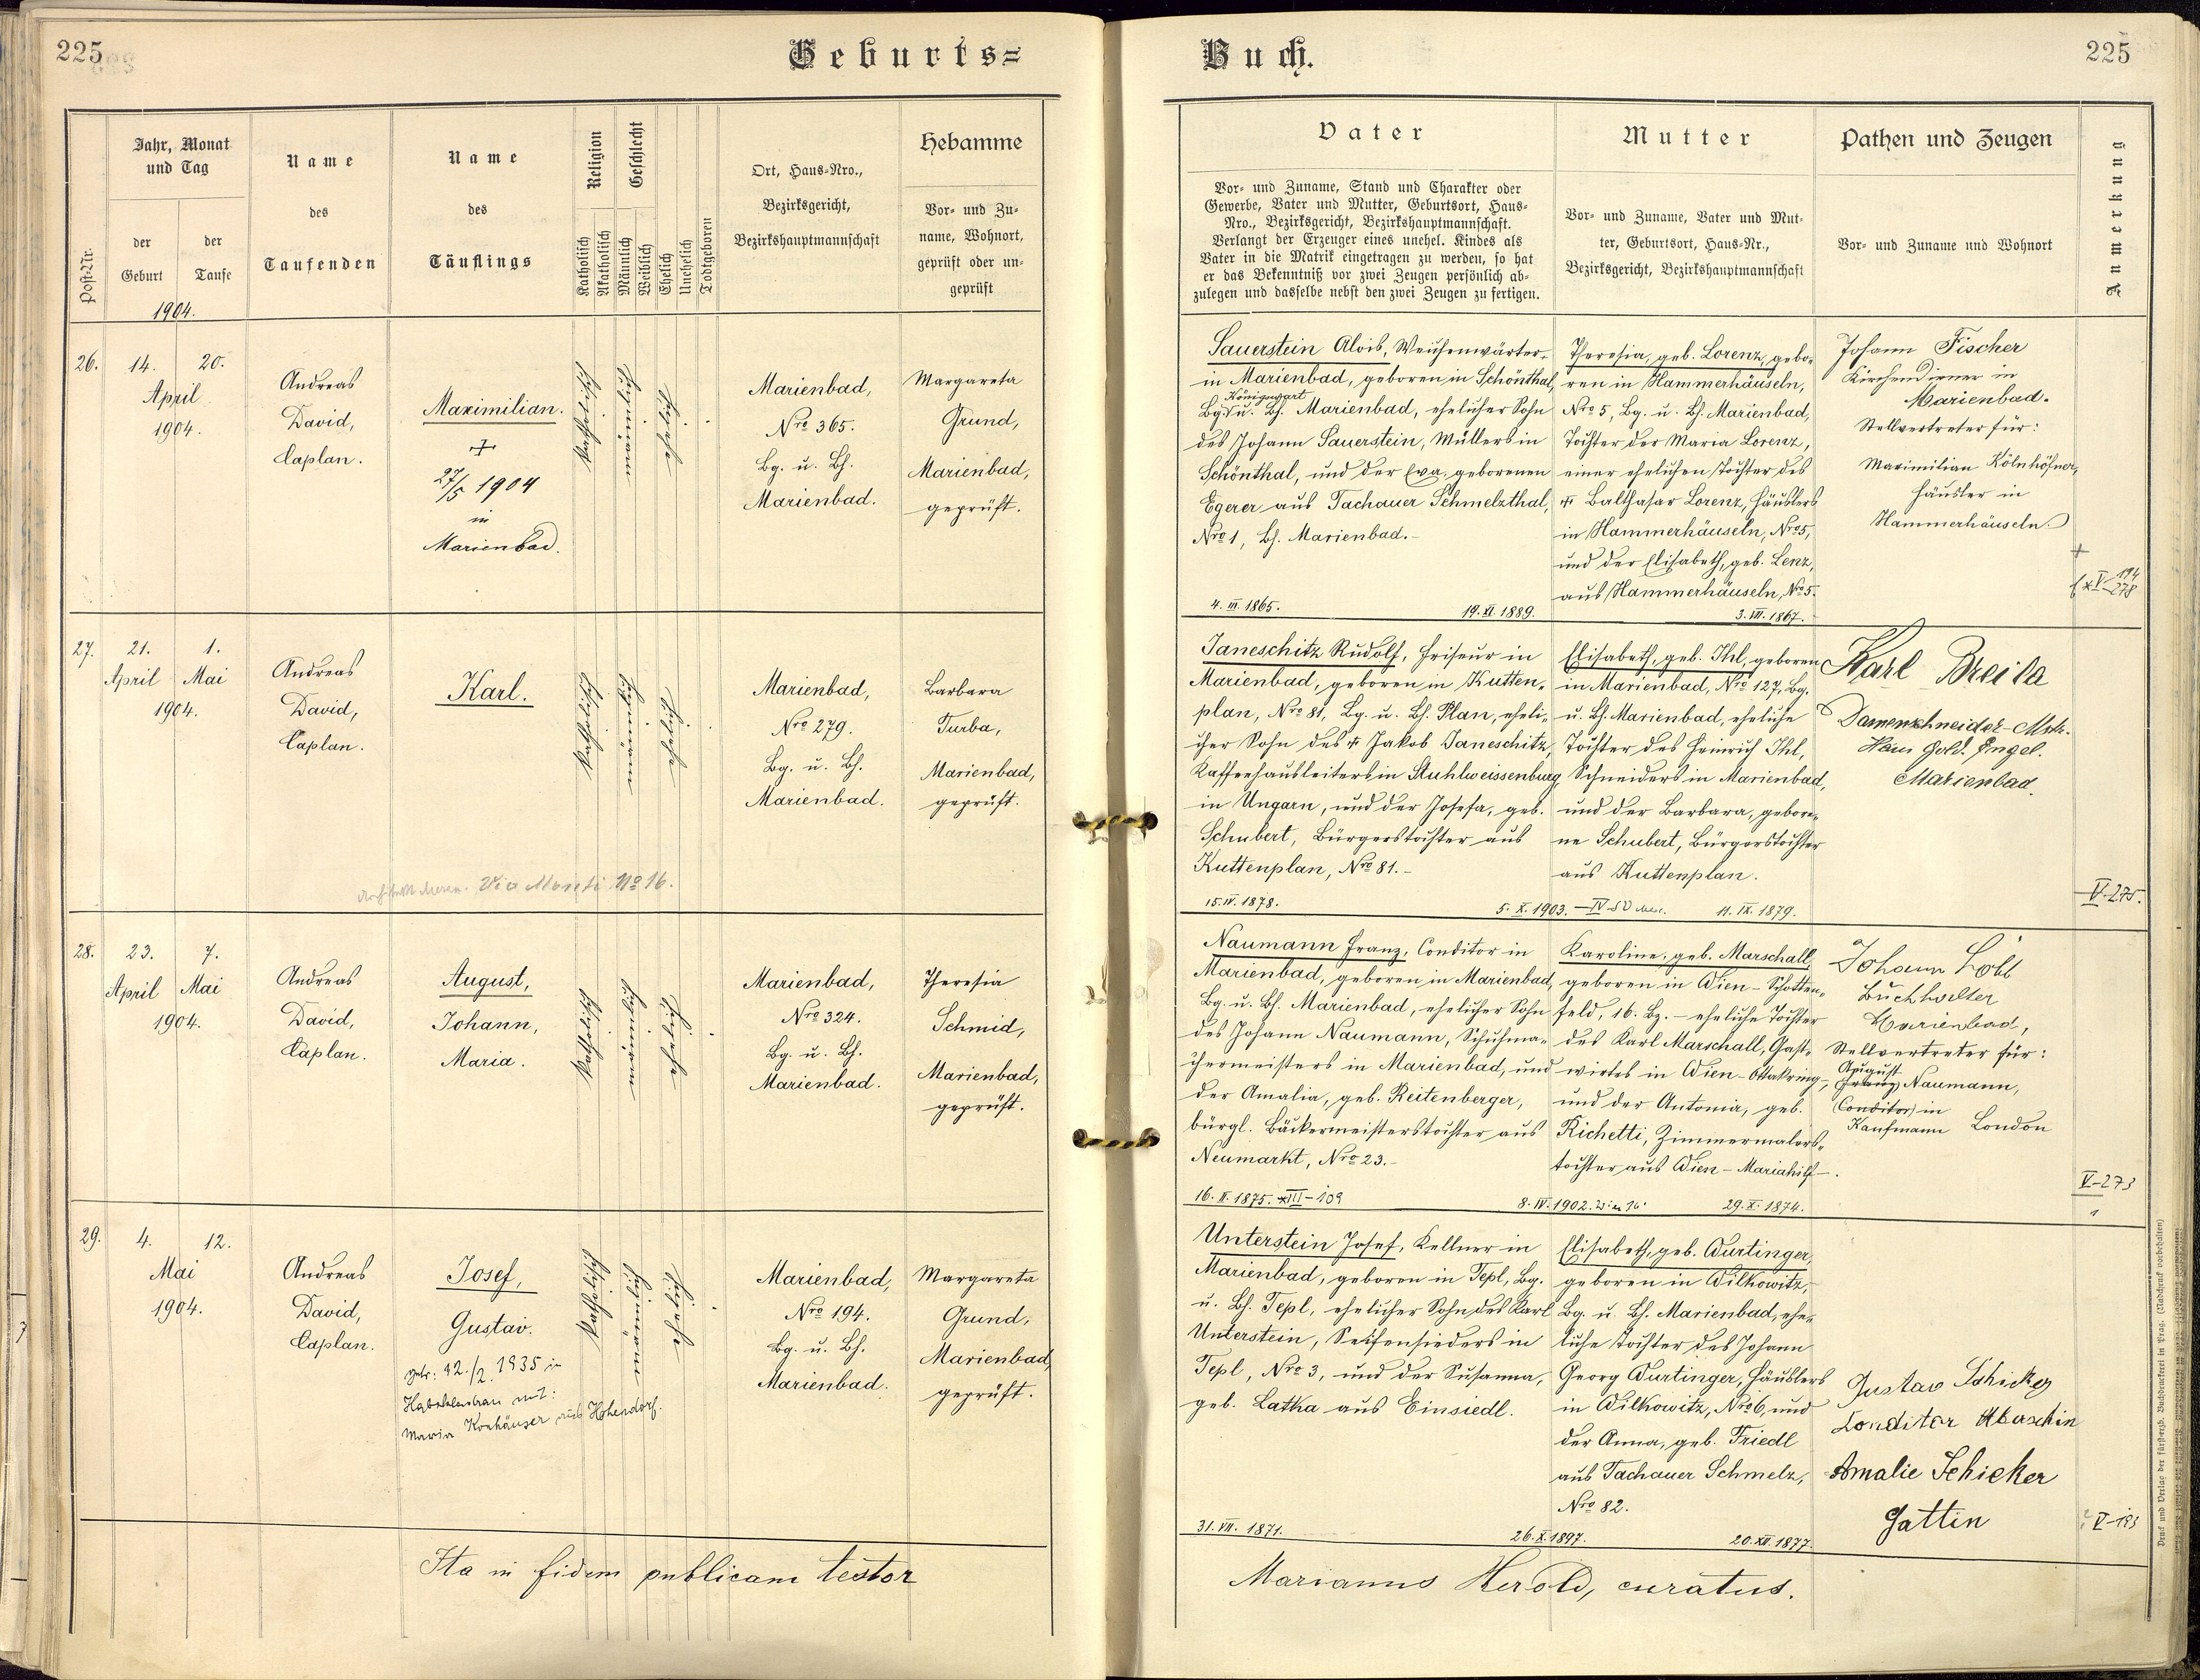 225
Geburts=
Jahr, Monat
und Tag
Post-Nr.
der
Geburt
der
Taufe
1904.
Name
des
Taufenden
Name
des
Täuflings
Religion
Katholisch
Akatholisch
Geschlecht
Männlich
Weiblich
Ehelich
Unehelich
Todtgeboren
Ort, Haus-Nro.,
Bezirksgericht,
Bezirkshauptmannschaft
Hebamme
Vor- und Zu-
name, Wohnort,
geprüft oder un-
geprüft
26.
14. 20.
April
1904.
Andreas
David,
Caplan.
Maximilian.
+
27/5 1904
in
Marienbad.
katholisch
männlich
ehelich
Marienbad,
Nro 365.
Bg. u. Bh.
Marienbad.
Margareta
Grund,
Marienbad,
geprüft.
27.
21. 1.
April Mai
1904.
Andreas
David,
Caplan.
Karl.
katholisch
männlich
ehelich
Marienbad,
Nro 279.
Bg. u. Bh.
Marienbad.
Barbara
Turba,
Marienbad,
geprüft.
No 16.
28.
23. 7.
April Mai
1904.
Andreas
David,
Caplan.
August,
Johann,
Maria.
katholisch
männlich
ehelich
Marienbad,
Nro 324.
Bg. u. Bh.
Marienbad.
Theresia
Schmid,
Marienbad,
geprüft.
29.
4. 12.
Mai
1904.
Andreas
David,
Caplan.
Josef,
Gustav.
1935 in
mit:
Maria aus
katholisch
männlich
ehelich
Marienbad,
Nro 194.
Bg. u. Bh.
Marienbad.
Margareta
Grund,
Marienbad,
geprüft.
Ita in fidem publicam testor
Buch.
225
Vater
Vor- und Zuname, Stand und Charakter oder
Gewerbe, Vater und Mutter, Geburtsort, Haus-
Nro., Bezirksgericht, Bezirkshauptmannschaft.
Verlangt der Erzeuger eines unehel. Kindes als
Vater in die Matrik eingetragen zu werden, so hat
er das Bekenntniß vor zwei Zeugen persönlich ab-
zulegen und dasselbe nebst den zwei Zeugen zu fertigen.
Mutter
Vor- und Zuname, Vater und Mut-
ter, Geburtsort, Haus-Nr.,
Bezirksgericht, Bezirkshauptmannschaft
Pathen und Zeugen
Vor- und Zuname und Wohnort
Anmerkung
Sauerstein Alois, Weichenwärter
in Marienbad, geboren in Schönthal,
Königswart
Bg. u. Bh. Marienbad, ehelicher Sohn
des Johann Sauerstein, Müllers in
Schönthal, und der Eva geborenen
Egerer aus Tachauer Schmelzthal,
Nro 1, Bh. Marienbad.-
4. III. 1865. 19. XI. 1889.
Theresia, geb. Lorenz, gebo-
ren in Hammerhäuseln,
Nro 5, Bg. u. Bh. Marienbad,
Tochter der Maria Lorenz,
einer ehelichen Tochter des
+ Balthasar Lorenz, Häuslers
in Hammerhäuseln, Nro 5,
und der Elisabeth, geb. Lenz,
aus Hammerhäuseln, Nro 5.
3. VII. 1867.
Johann Fischer
Kirchendiener in
Marienbad.
Stellvertreter für:
Maximilian
Häusler in
Hammerhäuseln.
+
Janeschitz Rudolf, Friseur in
Marienbad, geboren in Kutten-
plan, Nro 81, Bg. u. Bh. Plan, eheli-
cher Sohn des + Jakob Janeschitz,
Kaffeehausleiters in Stuhlweissenburg
in Ungarn, und der Josefa, geb.
Schubert, Bürgerstochter aus
Kuttenplan, Nro 81.-
15. IV. 1878. 5. X. 1903.
Elisabeth, geb. Ihl, geboren
in Marienbad, Nro 127, Bg.
u. Bh. Marienbad, eheliche
Tochter des Heinrich Ihl,
Schneiders in Marienbad,
und der Barbara, gebore-
ne Schubert, Bürgerstochter
aus Kuttenplan.
11. IX. 1879.
Karl Breita
Damenschneider-Mstr.
Haus Gold. Engel.
Marienbad.
V-275.
Naumann Franz, Conditor in
Marienbad, geboren in Marienbad,
Bg. u. Bh. Marienbad, ehelicher Sohn
des Johann Naumann, Schuhma-
chermeisters in Marienbad, und
der Amalia, geb. Reitenberger,
bürgl. Bäckermeisterstochter aus
Neumarkt, Nro 23.-
16. II. 1875. XIII-109 8. IV. 1902.
Karoline, geb. Marschall,
geboren in Wien-Schotten-
feld, 16. Bz. - eheliche Tochter
des Karl Marschall, Gast-
wirtes in Wien-Ottakring,
und der Antonia, geb.
Richetti, Zimmermalers-
tochter aus Wien-Mariahilf-.
29. X. 1874.
Johann Löbl
Buchhalter
Marienbad,
Stellvertreter für:
August
Franz Naumann,
Conditor in
Kaufmann London
V-273
Unterstein Josef, Kellner in
Marienbad, geboren in Tepl, Bg.
u. Bh. Tepl, ehelicher Sohn des Karl
Unterstein, Seifensieders in
Tepl, Nro 3, und der Susanna,
geb. Latka aus Einsiedl.
31. VII. 1871. 26. X. 1897.
Elisabeth, geb. Wurtinger,
geboren in Wilkowitz,
Bg. u. Bh. Marienbad, ehe-
liche Tochter des Johann
Georg Wurtinger, Häuslers
in Wilkowitz, Nro 6, und
der Anna, geb. Friedl
aus Tachauer Schmelz,
Nro 82.
20. XII. 1877.
Gustav Schicker
Conditor
Amalie Schicker
Gattin
Marianus Herold, curatus.
Druck und Verlag der fürsterzb. Buchdruckerei in Prag. (Nachdruck vorbehalten)